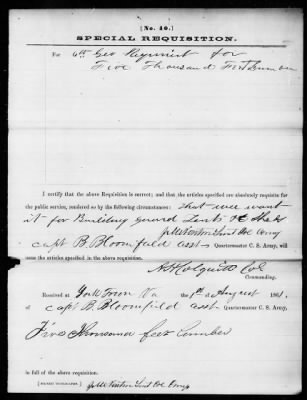 [No. 40.]
SPECIAL REQUISITION.
For 6th Geo Regiment for
Five Thousand Feet Lumber
I certify that the above Requisition is correct; and that the articles specified are absolutely requisite for
the public service, rendered so by the following circumstances: That we want
it for Building guard Tents &
Lieut Col Comg
capt B. Bloomfield asst Quartermaster C. S. Army, will
issue the articles specified in the above requisition.
A H Colquitt Col
Commanding.
Received at York Town Va the 1st of August 1861,
of capt B. Bloomfield asst Quartermaster C. S. Army,
Five Thousand feet Lumber
in full of the above requisition.
[SIGNED DUPLICATE.] Lieut Col Comg